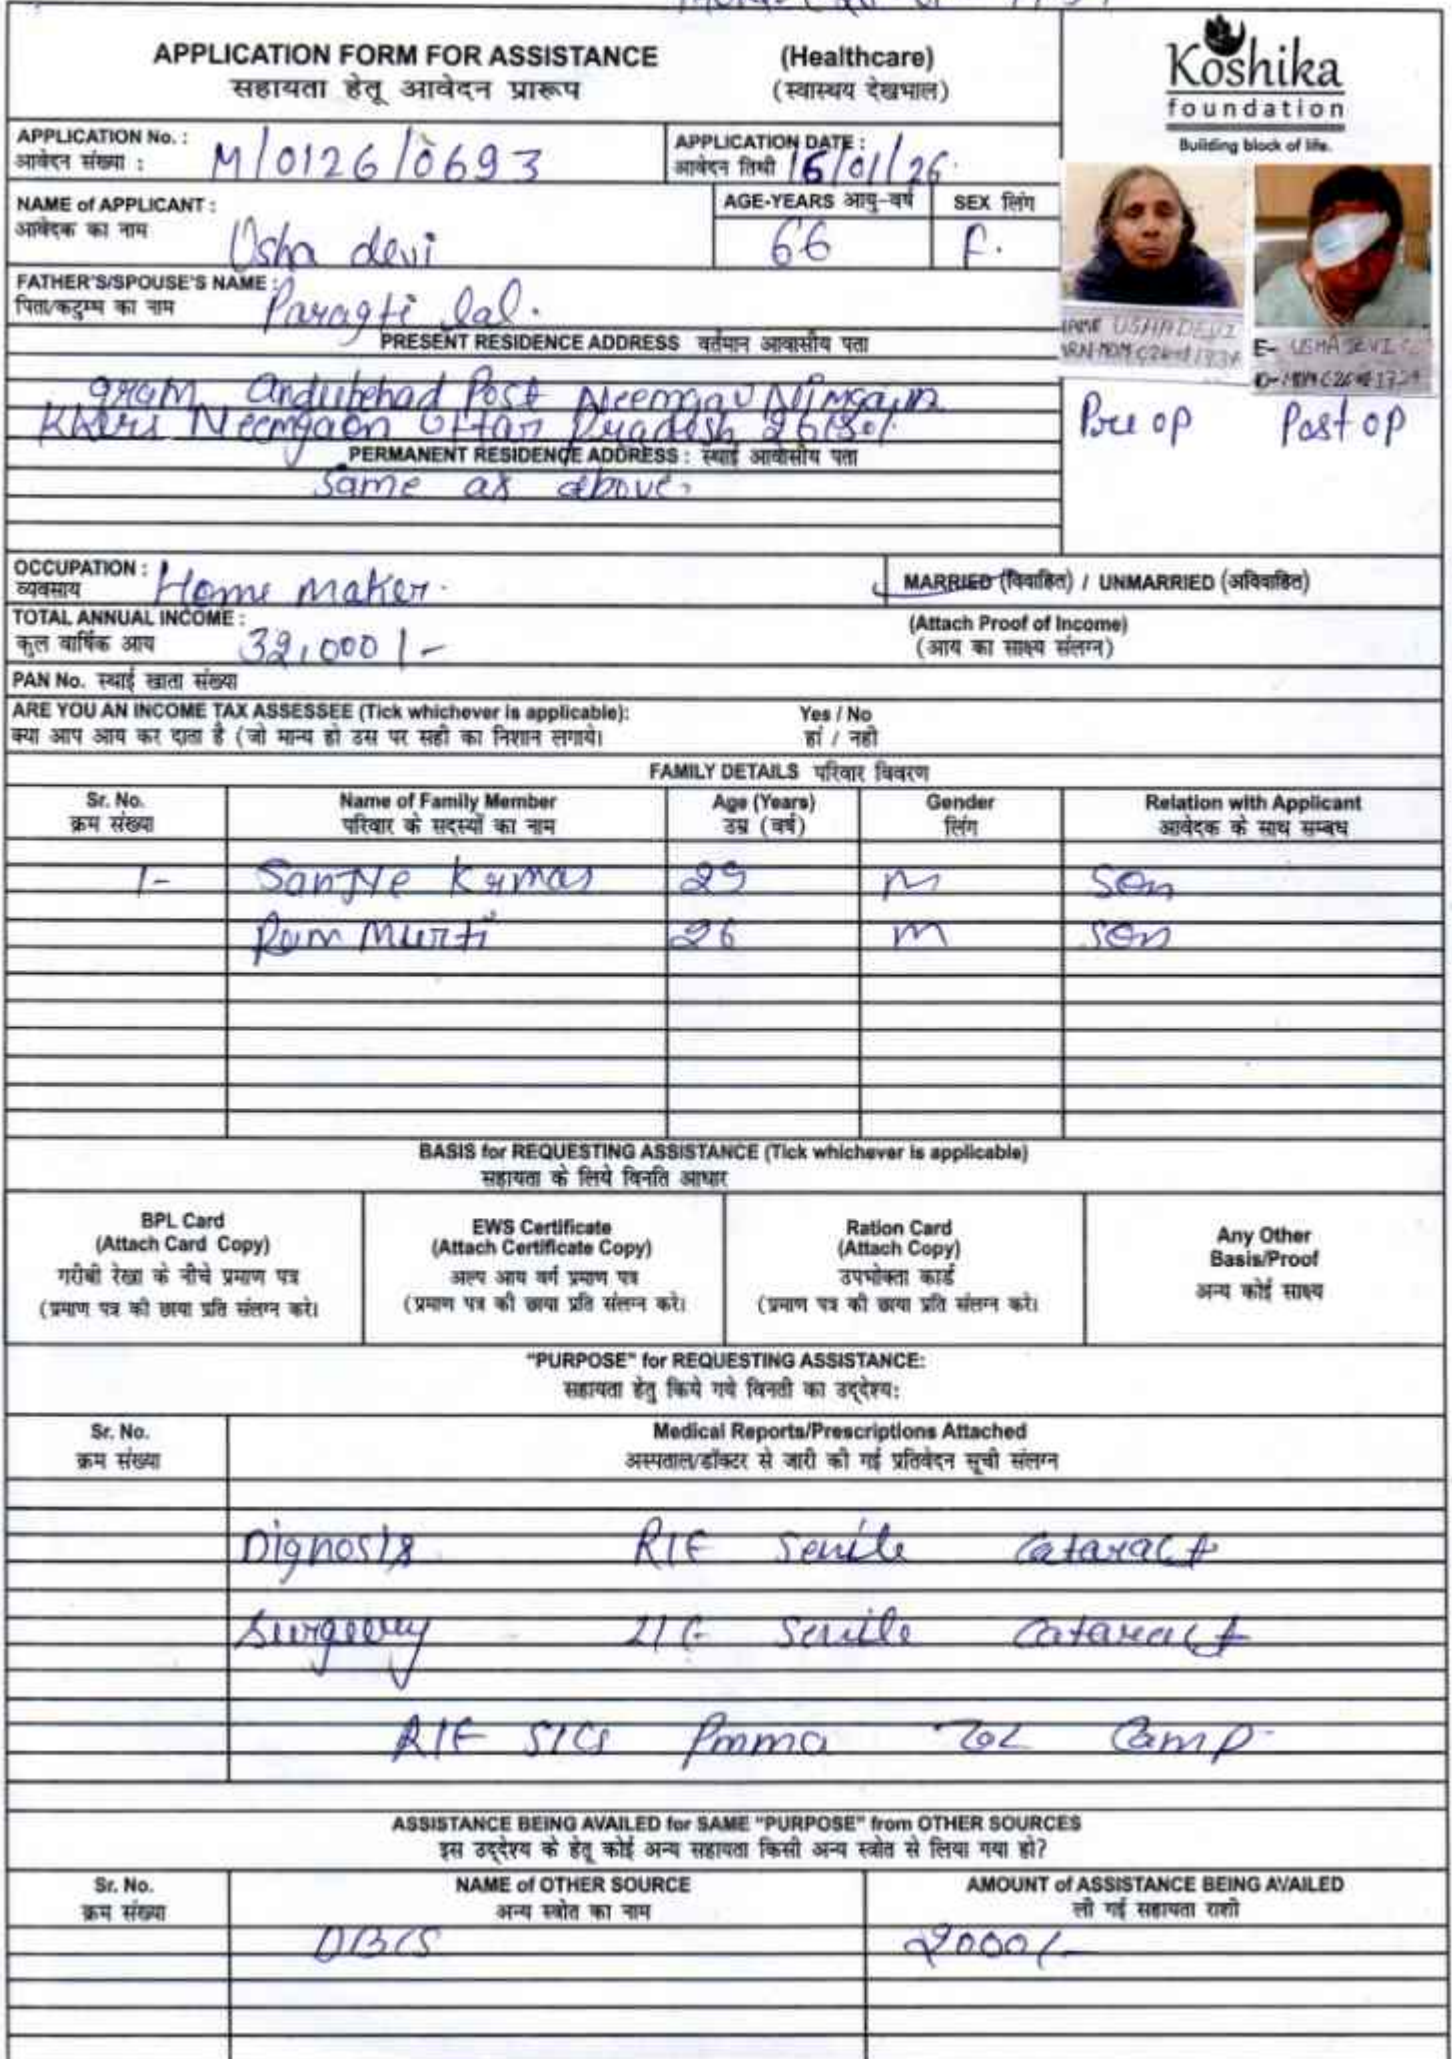 APPLICATION FORM FOR ASSISTANCE (Healthcare)
सहायता हेतू आवेदन प्रारूप (स्वास्थय देखभाल)
Koshika
foundation
Building block of life.
APPLICATION No. : M/0126/0693
आवेदन संख्या :
APPLICATION DATE : 15/01/26
आवेदन तिथी
NAME of APPLICANT : Usha devi
आवेदक का नाम
AGE-YEARS आयु-वर्ष 66
SEX लिंग F.
FATHER'S/SPOUSE'S NAME : Paragti lal.
पिता/कटुम्ब का नाम
NAME USHA DEVI
USHA DEVI
Pre op Post op
PRESENT RESIDENCE ADDRESS वर्तमान आवासीय पता
gram Andubehad Post Neemgav Nimgain
Kheri Neemgaon Uttar Pradesh 261301
PERMANENT RESIDENCE ADDRESS : स्थाई आवासीय पता
Same as above.
OCCUPATION : Home maker.
व्यवसाय
MARRIED (विवाहित) / UNMARRIED (अविवाहित)
TOTAL ANNUAL INCOME : 32,000/-
कुल वार्षिक आय
(Attach Proof of Income)
(आय का साक्ष्य संलग्न)
PAN No. स्थाई खाता संख्या
ARE YOU AN INCOME TAX ASSESSEE (Tick whichever is applicable): Yes / No
क्या आप आय कर दाता है (जो मान्य हो उस पर सही का निशान लगाये। हां / नही
FAMILY DETAILS परिवार विवरण
Sr. No. Name of Family Member Age (Years) Gender Relation with Applicant
क्रम संख्या परिवार के सदस्यों का नाम उम्र (वर्ष) लिंग आवेदक के साथ सम्बध
1- Sanjye Kumar 29 M Son
Ram Murti 26 M Son
BASIS for REQUESTING ASSISTANCE (Tick whichever is applicable)
सहायता के लिये विनति आधार
BPL Card
(Attach Card Copy)
गरीबी रेखा के नीचे प्रमाण पत्र
(प्रमाण पत्र की छाया प्रति संलग्न करे।
EWS Certificate
(Attach Certificate Copy)
अल्प आय वर्ग प्रमाण पत्र
(प्रमाण पत्र की छाया प्रति संलग्न करे।
Ration Card
(Attach Copy)
उपभोक्ता कार्ड
(प्रमाण पत्र की छाया प्रति संलग्न करे।
Any Other
Basis/Proof
अन्य कोई साक्ष्य
"PURPOSE" for REQUESTING ASSISTANCE:
सहायता हेतु किये गये विनती का उद्देश्य:
Sr. No. Medical Reports/Prescriptions Attached
क्रम संख्या अस्पताल/डॉक्टर से जारी की गई प्रतिवेदन सूची संलग्न
Dignosis RIE Senile Cataract
Surgeery - LIE Senile Cataract
RIE SICS Pmma IOL Camp
ASSISTANCE BEING AVAILED for SAME "PURPOSE" from OTHER SOURCES
इस उद्देश्य के हेतू कोई अन्य सहायता किसी अन्य स्त्रोत से लिया गया हो?
Sr. No. NAME of OTHER SOURCE AMOUNT of ASSISTANCE BEING AVAILED
क्रम संख्या अन्य स्त्रोत का नाम ली गई सहायता राशी
DBCS 2000/-